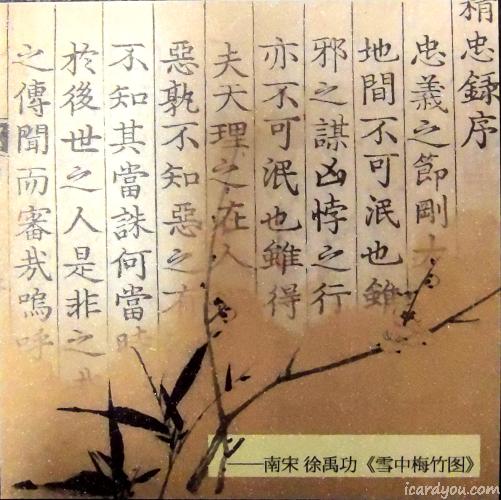 精忠録序
忠義之節剛
地間不可泯也雖
邪之謀凶悖之行
亦不可泯也雖得
夫天理之在人
惡孰不知惡之
不知其當誅何當時
於後世之人是非之
之傳聞而審哉嗚呼
——南宋 徐禹功《雪中梅竹图》
icardyou.com